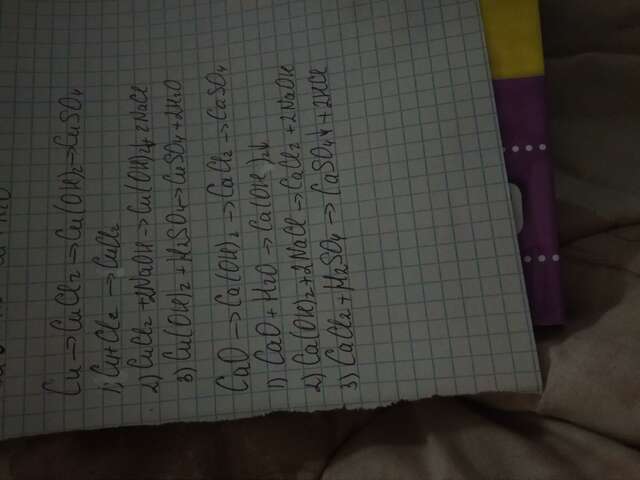 Cu→CuCl2→Cu(OH)2→CuSO4
1) Cu+Cl2→CuCl2
2) CuCl2+2NaOH→Cu(OH)2↓+2NaCl
3) Cu(OH)2+H2SO4→CuSO4+2H2O
CaO→Ca(OH)2→CaCl2→CaSO4
1) CaO+H2O→Ca(OH)2↓
2) Ca(OH)2+2NaCl→CaCl2+2NaOH
3) CaCl2+H2SO4→CaSO4↓+2HCl